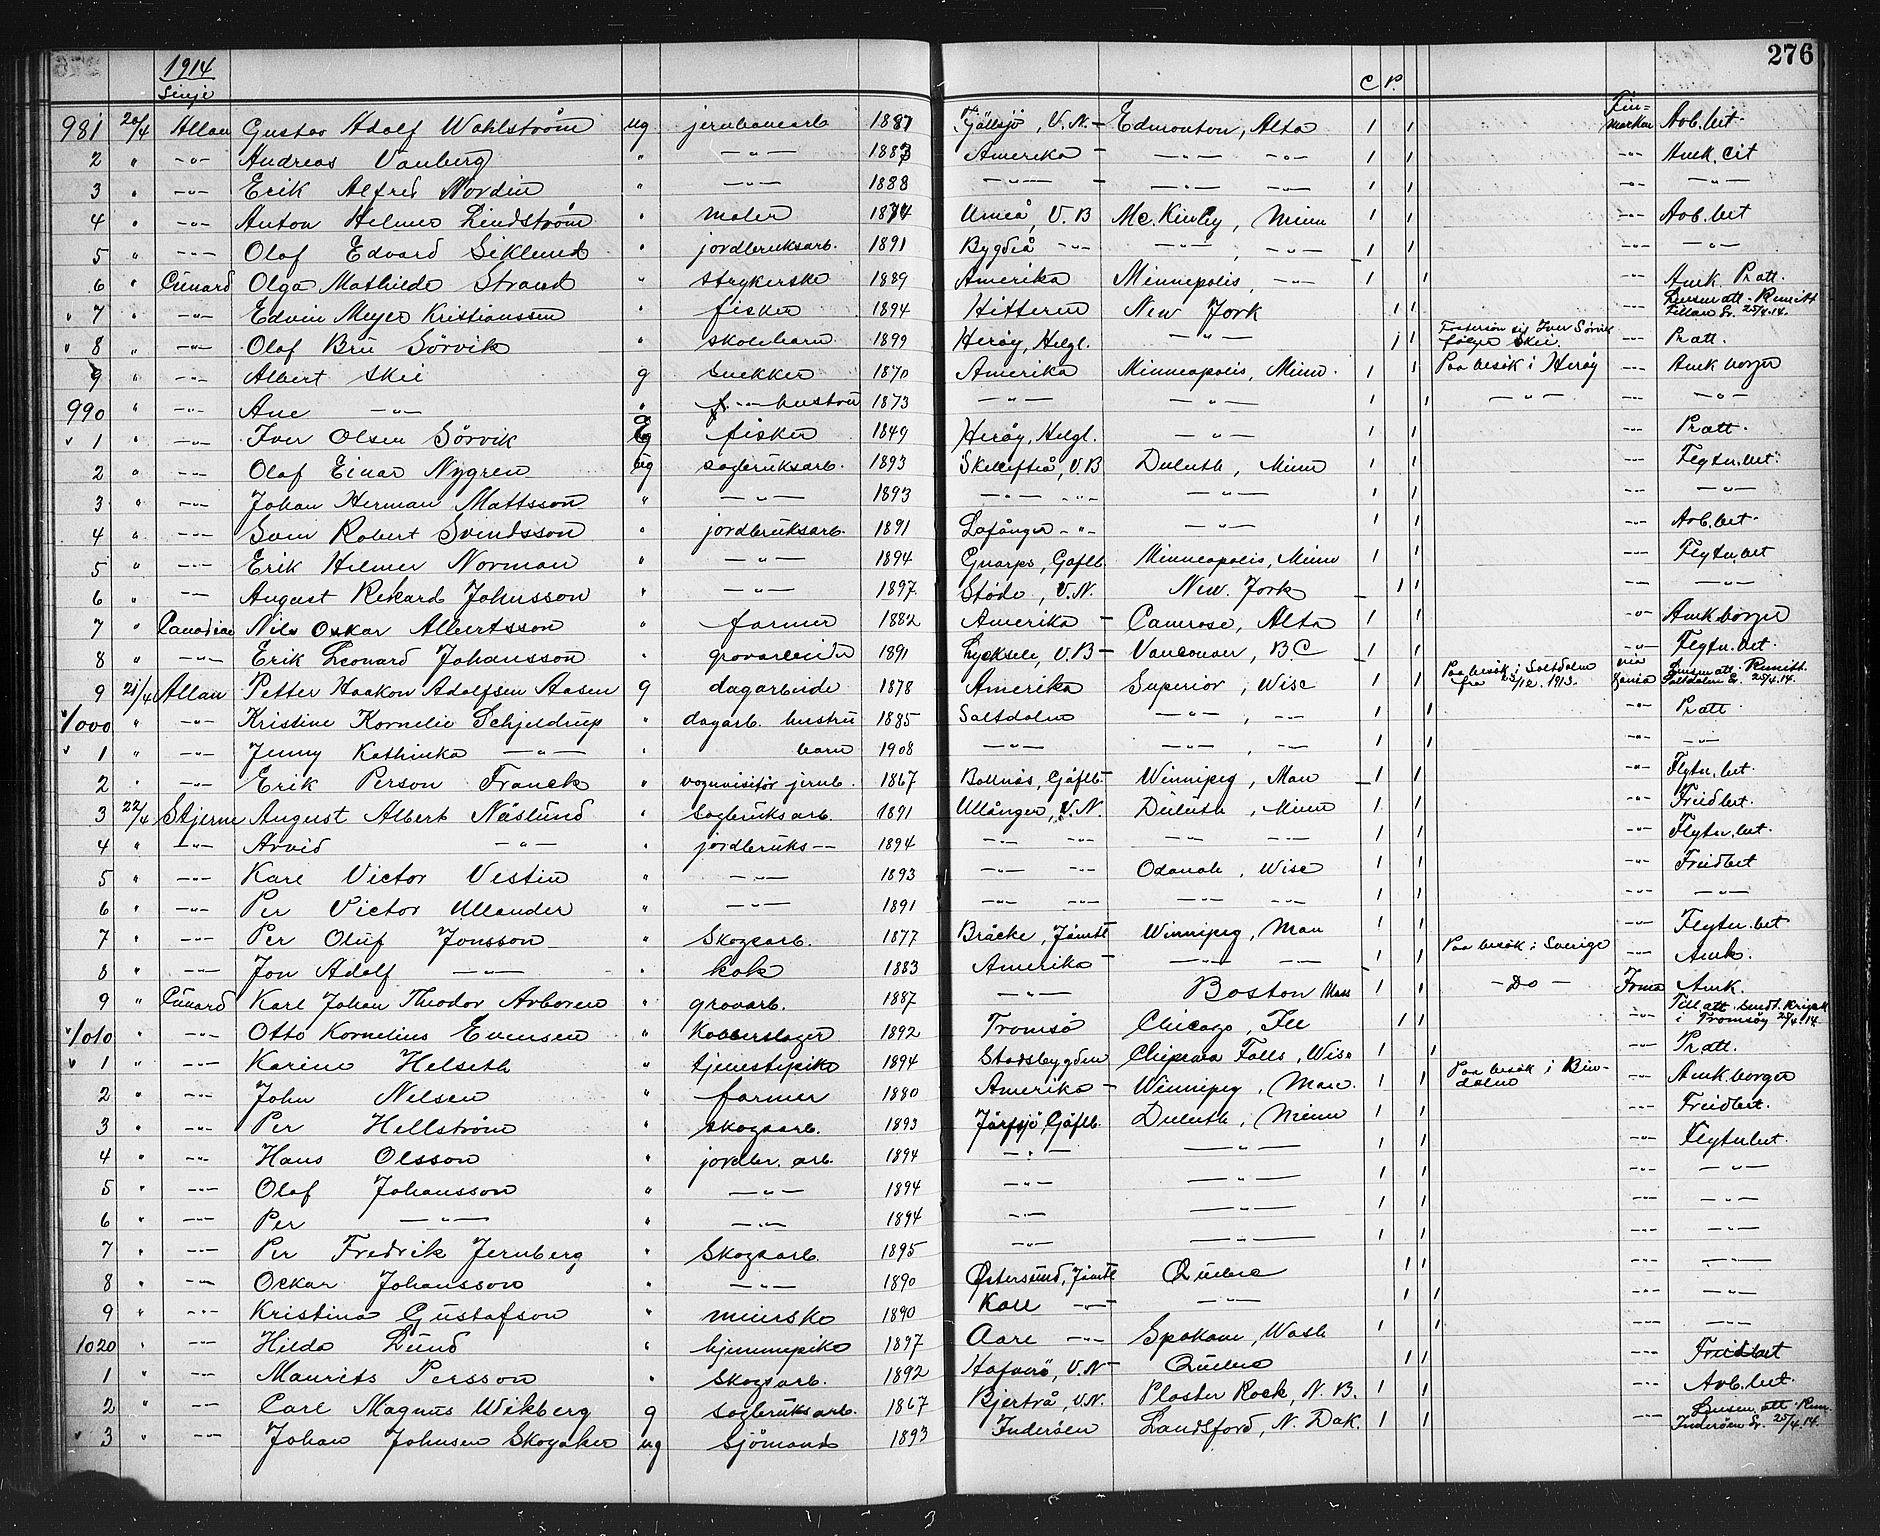 276
1914
Linje C P.
981 20/4 Allan Gustav Adolf Wahlström ug jernbanearb 1887 Fjällsjö, V.N. – Edmonton, Alta 1 1 Finmarken Arb. bet.
2 " –"– Andreas Vanberg " –"– 1883 Amerika – –"– –"– 1 1 –"– Amk. cit
3 " –"– Erik Alfred Nordin " –"– 1888 –"– – –"– –"– 1 1 –"– –"–
4 " –"– Anton Helmer Lindström " maler 1874 Umeå, V.B Mc.Kinley, Minn 1 1 –"– Arb. bet
5 " –"– Olof Edvard Siklund " jordbruksarb. 1891 Bygdeå –"– –"– , –"– 1 1 –"– –"–
6 " Cunard Olga Mathilde Strand " strykerske 1889 Amerika Minnepolis, –"– 1 1 –"– Amk. Pr att.
" 7 " –"– Edvin Meyer Kristianssen " fisker 1894 Hitteren New York 1 1 –"– Lensm att. Remitt Fillan Sr. 25/4.14.
" 8 " –"– Olaf Bru Sørvik " skolebarn 1899 Herøy, Helgl. –"– 1 1 Fostersön til Iver Sörvik fölger Skei. –"– Pr att.
9 " –"– Albert Skei g Snekker 1870 Amerika Minneapolis, Minn. 1 1 Paa besök i Herøy –"– Amk borger
990 " –"– Ane –"– " –"– hustru 1873 –"– –"– 1 1 –"– –"– –"–
" 1 " –"– Iver Olsen Sörvik Eg fisker 1849 Herøy, Helgl. –"– 1 1 –"– Pr att.
2 " –"– Olaf Einar Nygren ug sagbruksarb. 1893 Skellefteå, V.B Duluth, Minn 1 1 –"– Flytn. bet.
3 " –"– Johan Herman Mattsson " –"– 1893 –"– –"– –"– 1 1 –"– –"–
4 " –"– Sven Robert Svendsson " jordbruksarb. 1891 Lofånger –"– –"– 1 1 –"– Arb. bet.
5 " –"– Erik Helmer Norman " –"– 1894 Gnarps, Gäfleb. Minneapolis, Minn 1 1 –"– Flytn. bet
6 " –"– August Rikard Johnsson " –"– 1897. Stöde, V.N. New York 1 1 –"– –"–
7 " Canadian Nils Oskar Albertsson " farmer 1882 Amerika – Camrose, Alta 1 1 –"– Amk borger
8 " –"– Erik Leonard Johansson " grovarbeider 1891 Lycksele, V.B – Vancouver, B.C 1 1 –"– Flytn. bet.
9 21/4 Allan Petter Haakon Adolfsen Aasen g dagarbeide 1878 Amerika Superior, Wisc 1 1 Paa besök i Saltdalen fra 23/12.1913. via Lensm att. Remitt. Saltdalen Sr. 25/4.14.
"1000 " –"– Kristine Kornelie Schjeldrup " dagarb. hustru 1885 Saltdalen –"– , –"– 1 1 –"– Pr att.
" 1 " –"– Jenny Kathinka –"– " barn 1908 –"– –"– , –"– 1 1 –"– –"–
2 " –"– Erik Person Franck " vognvisitör jernb. 1867 Bollnäs, Gäfleb – Winnipeg, Man 1 1 –"– Flytn. bet.
3 22/4 Stjerne August Albert Näslund " sagbruksarb. 1891 Ullånger, V.N. Duluth, Minn 1 1 –"– Friedbet.
4 " –"– Arvid –"– " jordbruks –"– 1894 –"– –"– –"– –"– 1 1 –"– Flytn. bet.
5 " –"– Karl Victor Vestin " –"– 1893 –"– –"– Odanah, Wisc 1 1 –"– Friedbet
6 " –"– Per Victor Ullander " –"– 1891 –"– –"– –"– –"– 1 1 –"– –"–
7 " –"– Per Oluf Jonsson " Skogsarb. 1877 Bräcke, Jämtl – Winnipeg, Man 1 1 –"– Flytn. bet
8 " –"– Jon Adolf –"– " kok 1883 Amerika – –"– –"– 1 1 Paa besök i Sverige –"– Amk.
9 " Cunard Karl Johan Theodor Arboren " grovarb. 1887 –"– Boston Mass 1 1 – Do – Amk
"1010 " –"– Otto Kornelius Evensen " Kobberslager 1892 Tromsö Chicago, Ill 1 1 –"– Till att. i Tromsöy 25/4.14.
" 1 " –"– Karine Helseth " tjenestepike 1894 Stadsbygden Chipewa Falls, Wisc 1 1 –"– Pr att.
2 " –"– John Nelsen " farmer 1880 Amerika – Winnipeg, Man. 1 1 Paa besök i Bindalen –"– Amk. borger
3 " –"– Per Hellström " skogsarb. 1893 Järfsjö, Gäfleb. Duluth, Minn 1 1 –"– Friedbet.
4 " –"– Hans Olsson " jordbr. arb. 1894 –"– –"– 1 1 –"– Flytn. bet.
5 " –"– Olof Johansson " –"– 1894 –"– –"– 1 1 –"– –"–
6 " –"– Per –"– " –"– 1894 –"– –"– 1 1 –"– –"–
7 " –"– Per Fredrik Jernberg " Skogsarb. 1895 –"– –"– 1 1 –"– –"–
8 " –"– Oskar Johansson " –"– 1890 Östersund, Jämtl Quebec 1 1 –"– –"–
9 " –"– Kristina Gustafson " meierske 1890 Kall –"– –"– 1 1 –"– –"–
1020 " –"– Hilda Lund " hjemmepike 1897 Aare –"– Spokane, Wash 1 1 –"– –"–
1 " –"– Maurits Persson " Skogsarb. 1892 Hafverö, V.N – Quebec 1 1 –"– Friedbet
2 " –"– Carl Magnus Wikberg g sagbruksarb. 1867 Bjertrå, V.N. Plaster Rock, N.B. 1 1 –"– Arb. bet.
" 3 " –"– Johan Johnsen Skogaker ug sjömand 1893 Inderøen Landsford, N. Dak. 1 1 –"– Lensm. att. Rem. Inderøen Sr. 25/4.14.